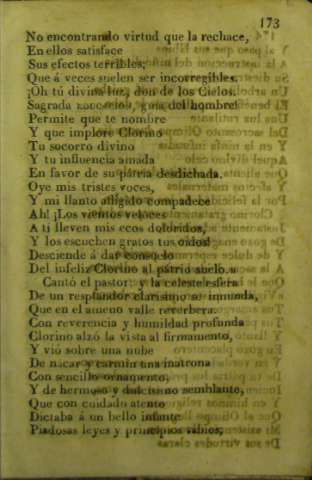 173
No encontrando virtud que la rechace,
En ellos satisface
Sus efectos terribles;
Que á veces suelen ser incorregibles.
¡Oh tú divina luz, don de los Cielos.
Sagrada guia del hombre!
Permite que te nombre
Y que implore Clorino
Tu socorro divino
Y tu influencia amada
En favor de su pátria desdichada.
Oye mis tristes voces,
Y mi llanto afligido compadece
Ah! ¡Los vientos veloces
A tí lleven mis ecos doloridos,
Y los escuchen gratos tus oidos!
Desciende á dar consuelo
Del infeliz Clorino al pátrio suelo.»
Cantó el pastor: y la celeste esfera
De un resplandor clarísimo se inunda,
Que en el ameno valle reverbera.
Con reverencia y humildad profunda
Clorino alzó la vista al firmamento,
Y vió sobre una nube
De nacar y carmin una matrona
Con sencillo ornamento,
Y de hermoso y dulcísimo semblante,
Que con cuidado atento
Dictaba á un bello infante
Piadosas leyes y principios sabios;